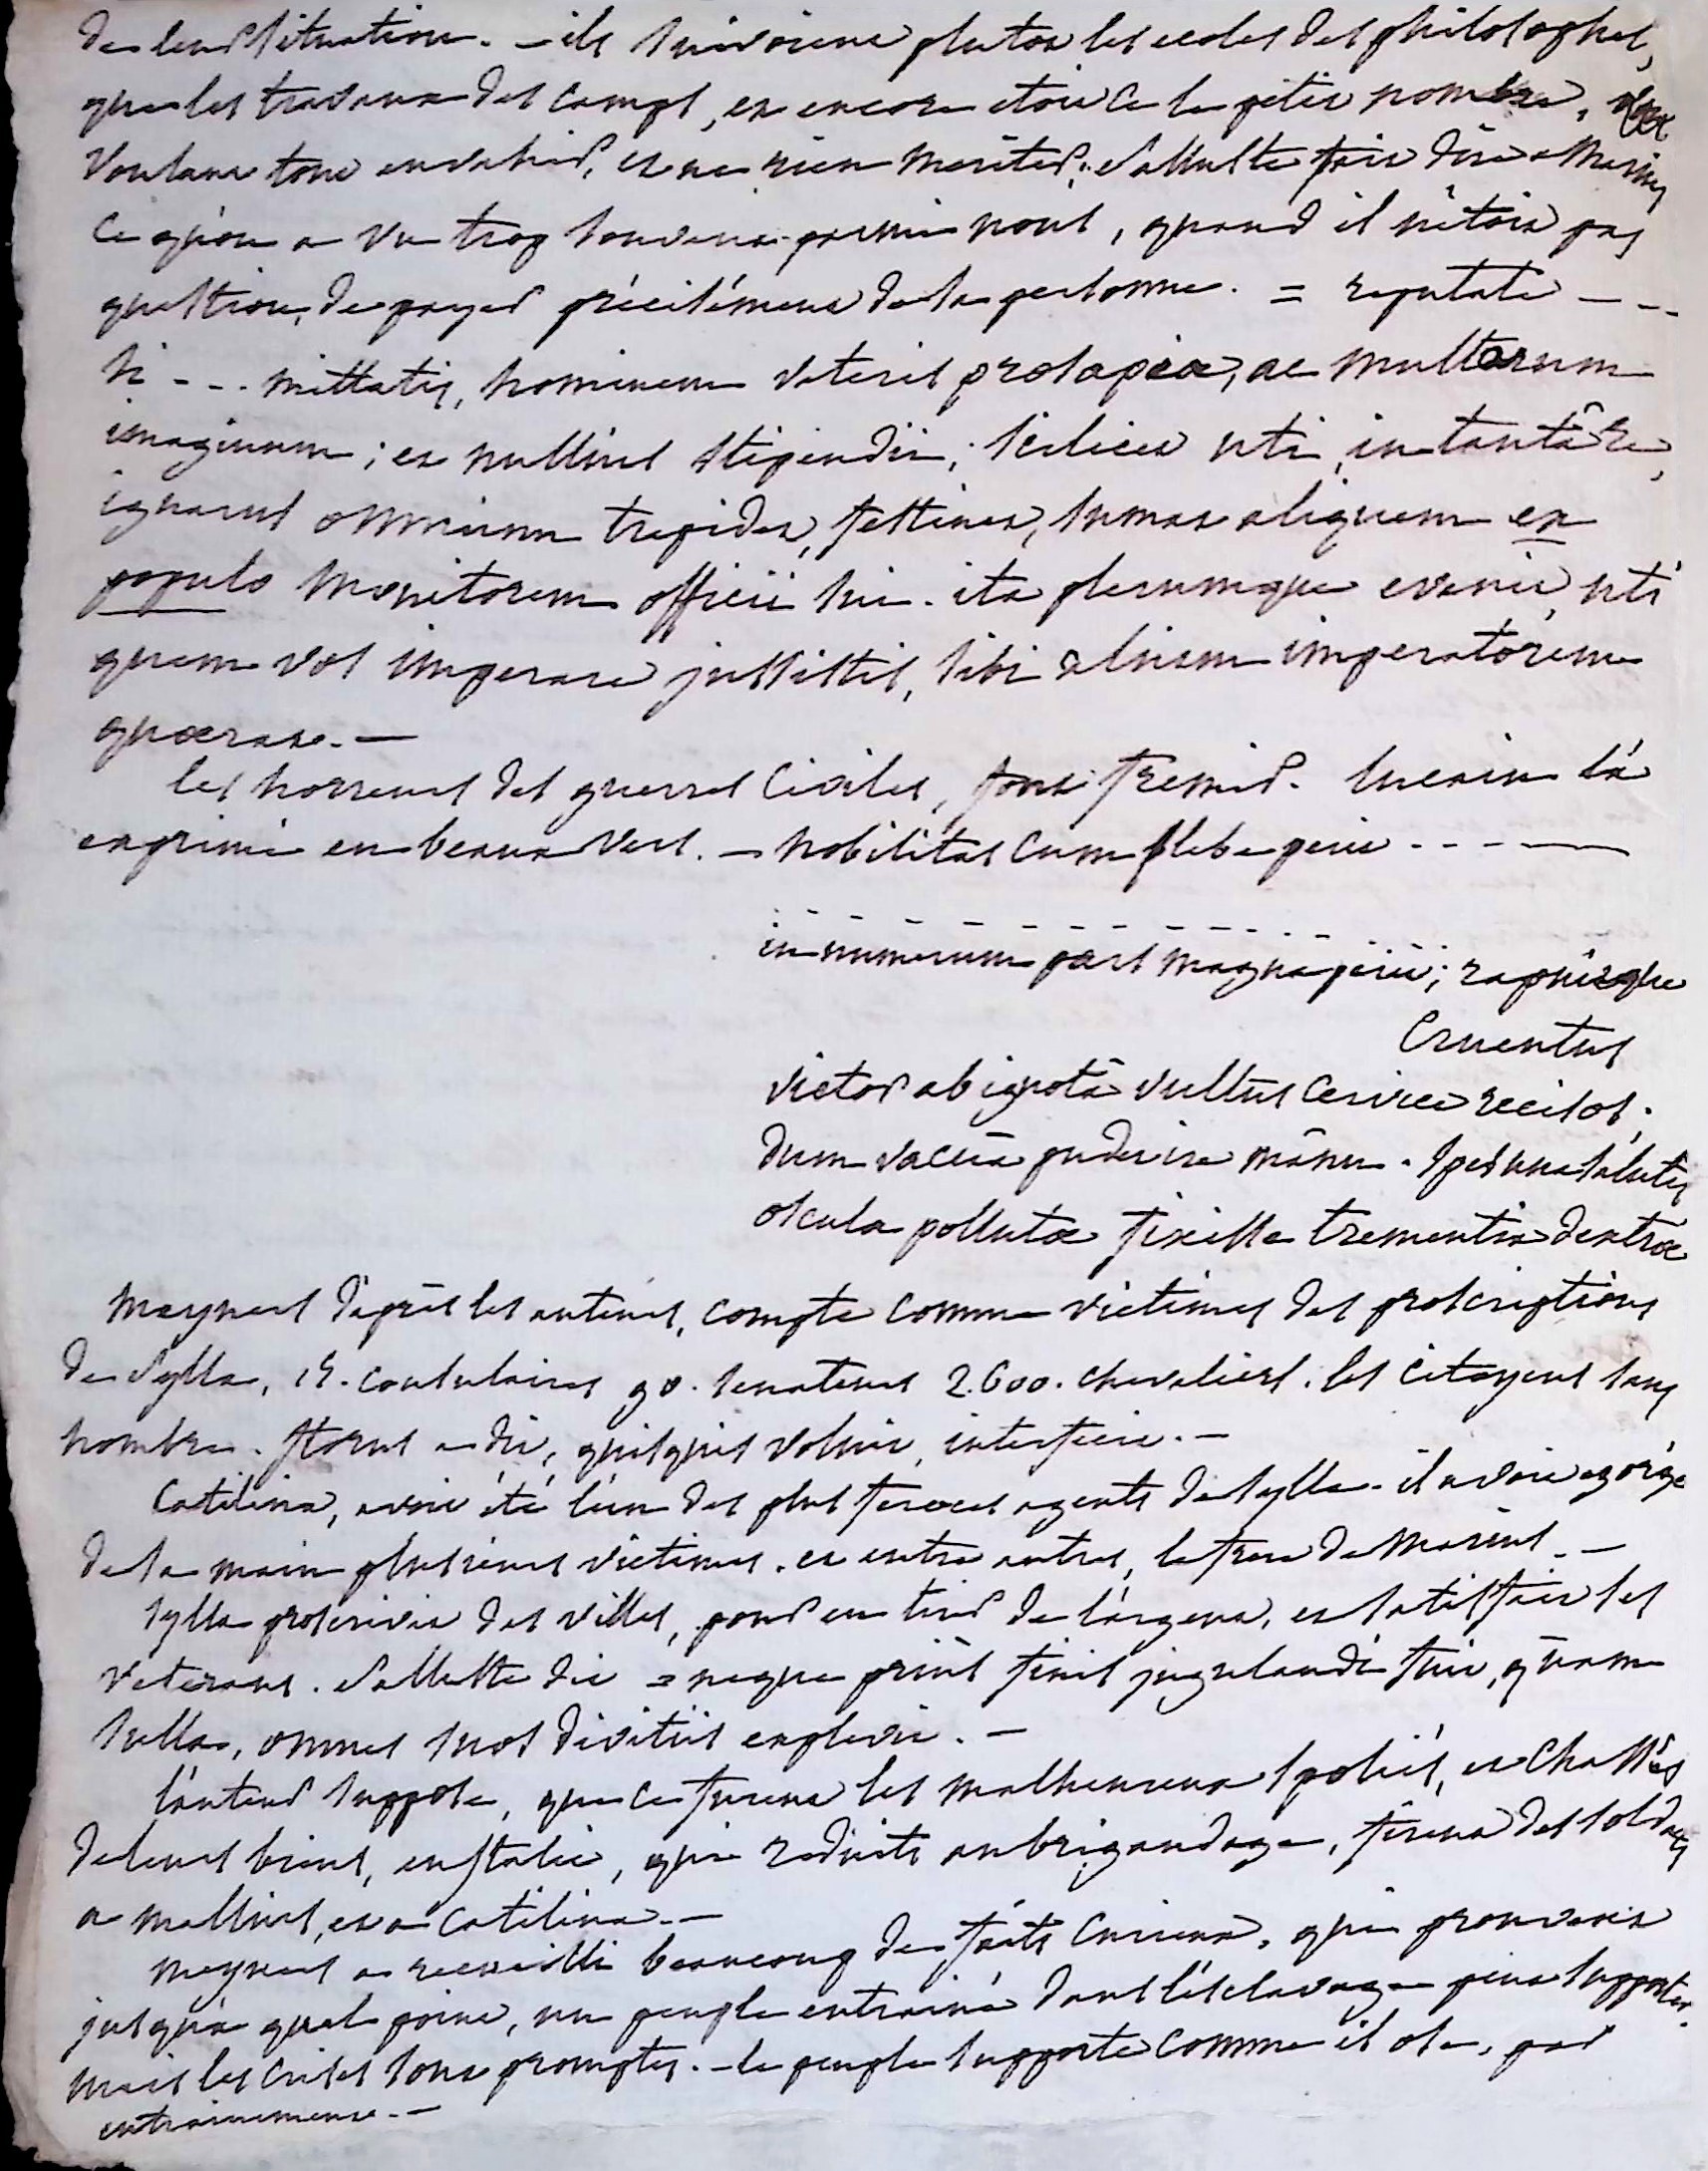 de leur situation. – ils suivoient plutôt les ecoles des philosophes,
que les travaux des camps, et encore etoit ce le petit nombre,
voulant tout envahir, et ne rien meriter; Salluste fait dire a Marius
ce qu'on a vu trop souvent parmi nous, quand il n'étoit pas
question, de payer précisément de sa personne. = reputate – – –
si - - - mittatis, hominem veteris prosapiæ, ac multarum
imaginum; et nullius stipendii; scilicet uti, in tantâ re,
ignarus omnium trepidet, festinet, sumat aliquem ex
populo monitorem officii sui. ita plerumque evenit, uti
quem vos imperare jussistis, sibi alium imperatorem
quærat. –
les horreurs des guerres civiles, font fremir. Lucain l'a
exprimé en beaux vers. – nobilitas cum plebe perit - - - - —
- - - - - - - - - - - -
in numerum pars magna perit; rapuitque
cruentus
victor ab ignotâ vultus cervice recisos.
dum vacuâ pudet ire manu. spes una salutis
oscula pollutæ fixisse trementia dextræ
Meyners d'après les auteurs, compte comme victimes des proscriptions
de Sylla, 15. consulaires 90. senateurs 2.600. chevaliers. les citoyens sans
nombre. florus a dit, quisquis voluit, interfecit. –
Catilina, avoit été l'un des plus feroces agents de Sylla. il avoit egorgé
de sa main plusieurs victimes. et entre autres, le frere de Marius. –
Sylla proscrivit des villes, pour en tirer de l'argent, et satisfaire ses
veterans. Salluste dit = neque priùs finis jugulandi fuit, quàm
Sulla, omnes suos divitiis explevit. –
l'auteur suppose, que ce furent les malheureux spoliés, et chassés
de leurs biens, en Italie, qui reduits au brigandage, firent des soldats
a Mallius, et a Catilina. –
Meyners a recueilli beaucoup de faits curieux, qui prouvent
jusqu'a quel point, un peuple entrainé dans l'esclavage peut supporter.
mais les crises sont promptes. – le peuple supporte comme il ose, par
entrainement. –